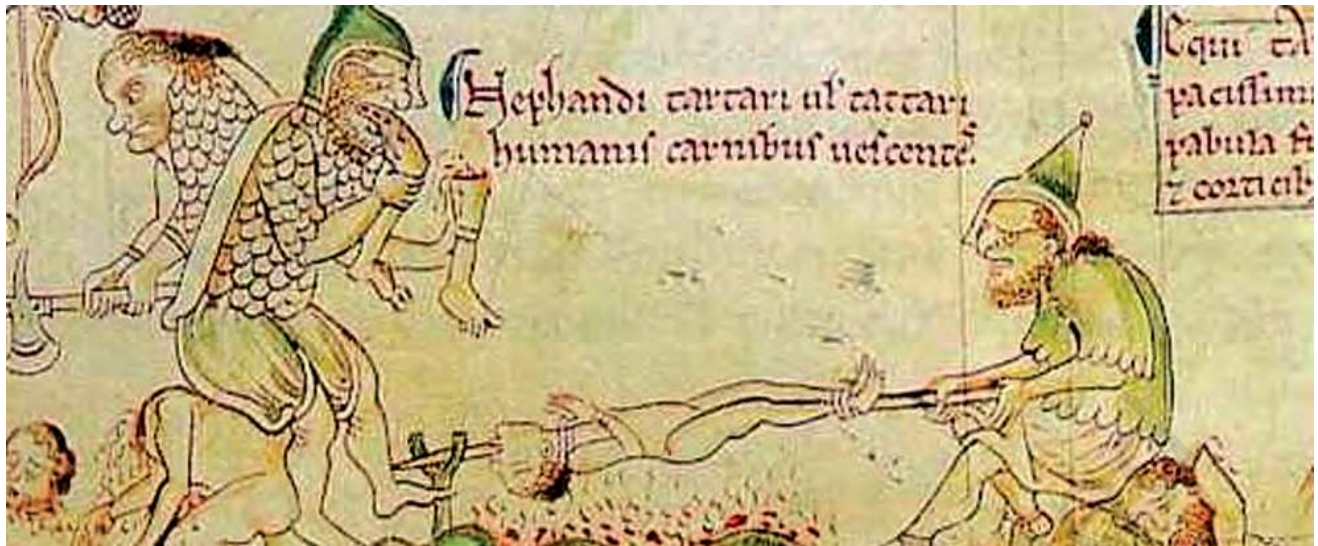 Nephandi tartari ul' tattari
humanis carnibus uescentes.
Equi ta
pacissimi
pabula fr
⁊ corticib